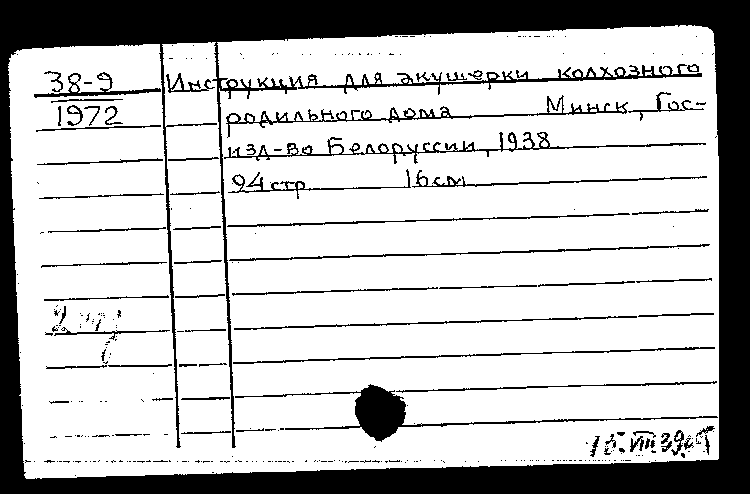 38-9 Инструкция для акушерки колхозного
1972 родильного дома Минск, Гос-
изд-во Белоруссии, 1938
94 стр 16 см
15.VIII 39